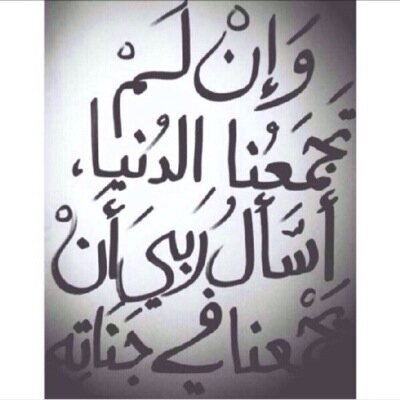 وَإِنْ لَمْ
تَجمَعُنا الدُنيا،
أَسَّألُ رَبيَ أَنْ
يَجْمعنا في جَناتِه